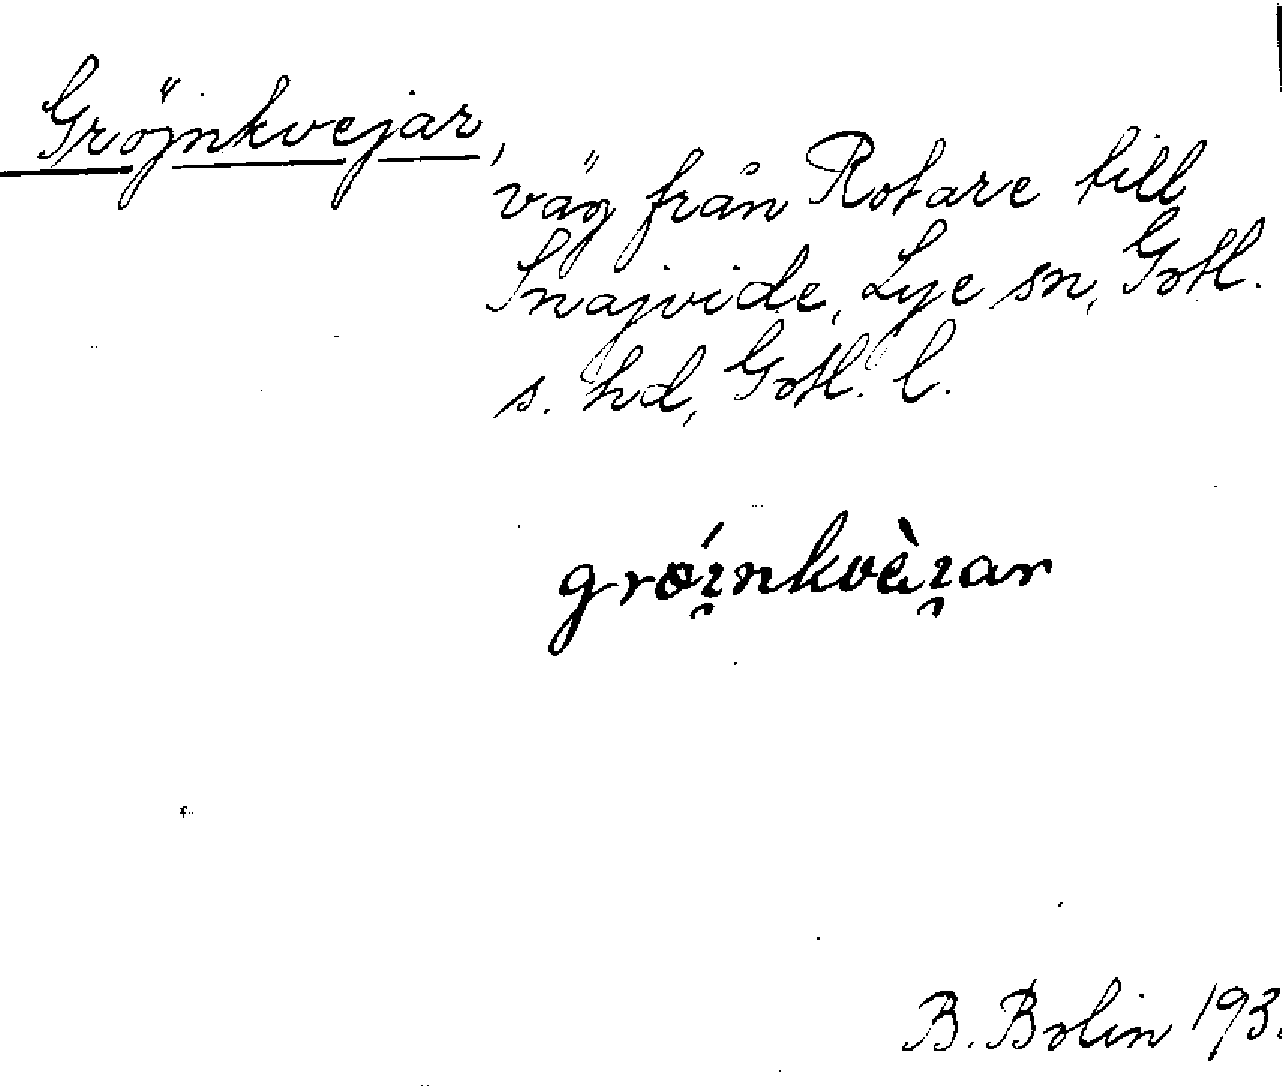 Gröjnkvejar,
väg från Rotare till
Snajvide, Lye sn, Gotl.
s. hd, Gotl. l.
grœ́ɪ̯nkvὲɪ̯ar
B. Bolin 193